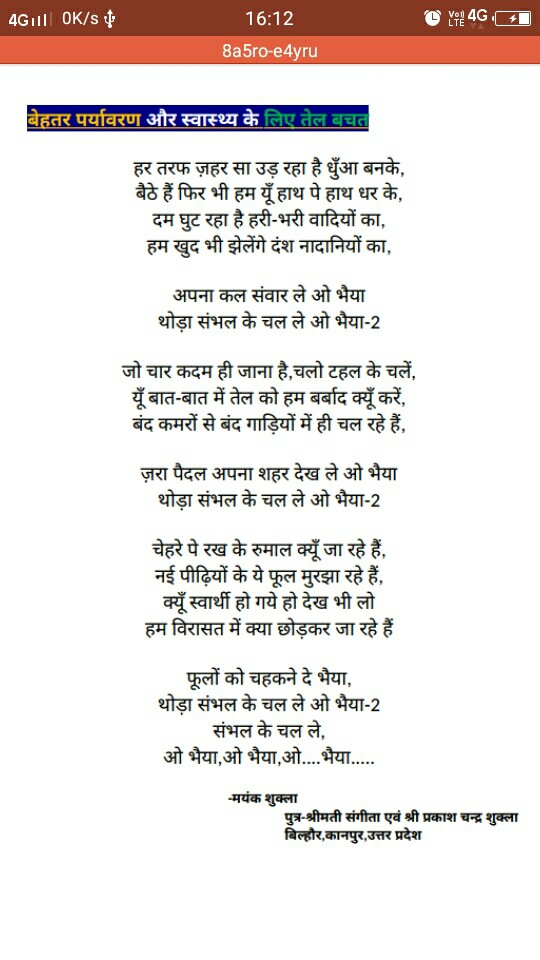 4G 0K/s 16:12 VoD LTE 4G
8a5ro-e4yru
बेहतर पर्यावरण और स्वास्थ्य के लिए तेल बचत
हर तरफ ज़हर सा उड़ रहा है धुँआ बनके,
बैठे हैं फिर भी हम यूँ हाथ पे हाथ धर के,
दम घुट रहा है हरी-भरी वादियों का,
हम खुद भी झेलेंगे दंश नादानियों का,
अपना कल संवार ले ओ भैया
थोड़ा संभल के चल ले ओ भैया-2
जो चार कदम ही जाना है,चलो टहल के चलें,
यूँ बात-बात में तेल को हम बर्बाद क्यूँ करें,
बंद कमरों से बंद गाड़ियों में ही चल रहे हैं,
ज़रा पैदल अपना शहर देख ले ओ भैया
थोड़ा संभल के चल ले ओ भैया-2
चेहरे पे रख के रुमाल क्यूँ जा रहे हैं,
नई पीढ़ियों के ये फूल मुरझा रहे हैं,
क्यूँ स्वार्थी हो गये हो देख भी लो
हम विरासत में क्या छोड़कर जा रहे हैं
फूलों को चहकने दे भैया,
थोड़ा संभल के चल ले ओ भैया-2
संभल के चल ले,
ओ भैया,ओ भैया,ओ....भैया.....
-मयंक शुक्ला
पुत्र-श्रीमती संगीता एवं श्री प्रकाश चन्द्र शुक्ला
बिल्हौर,कानपुर,उत्तर प्रदेश